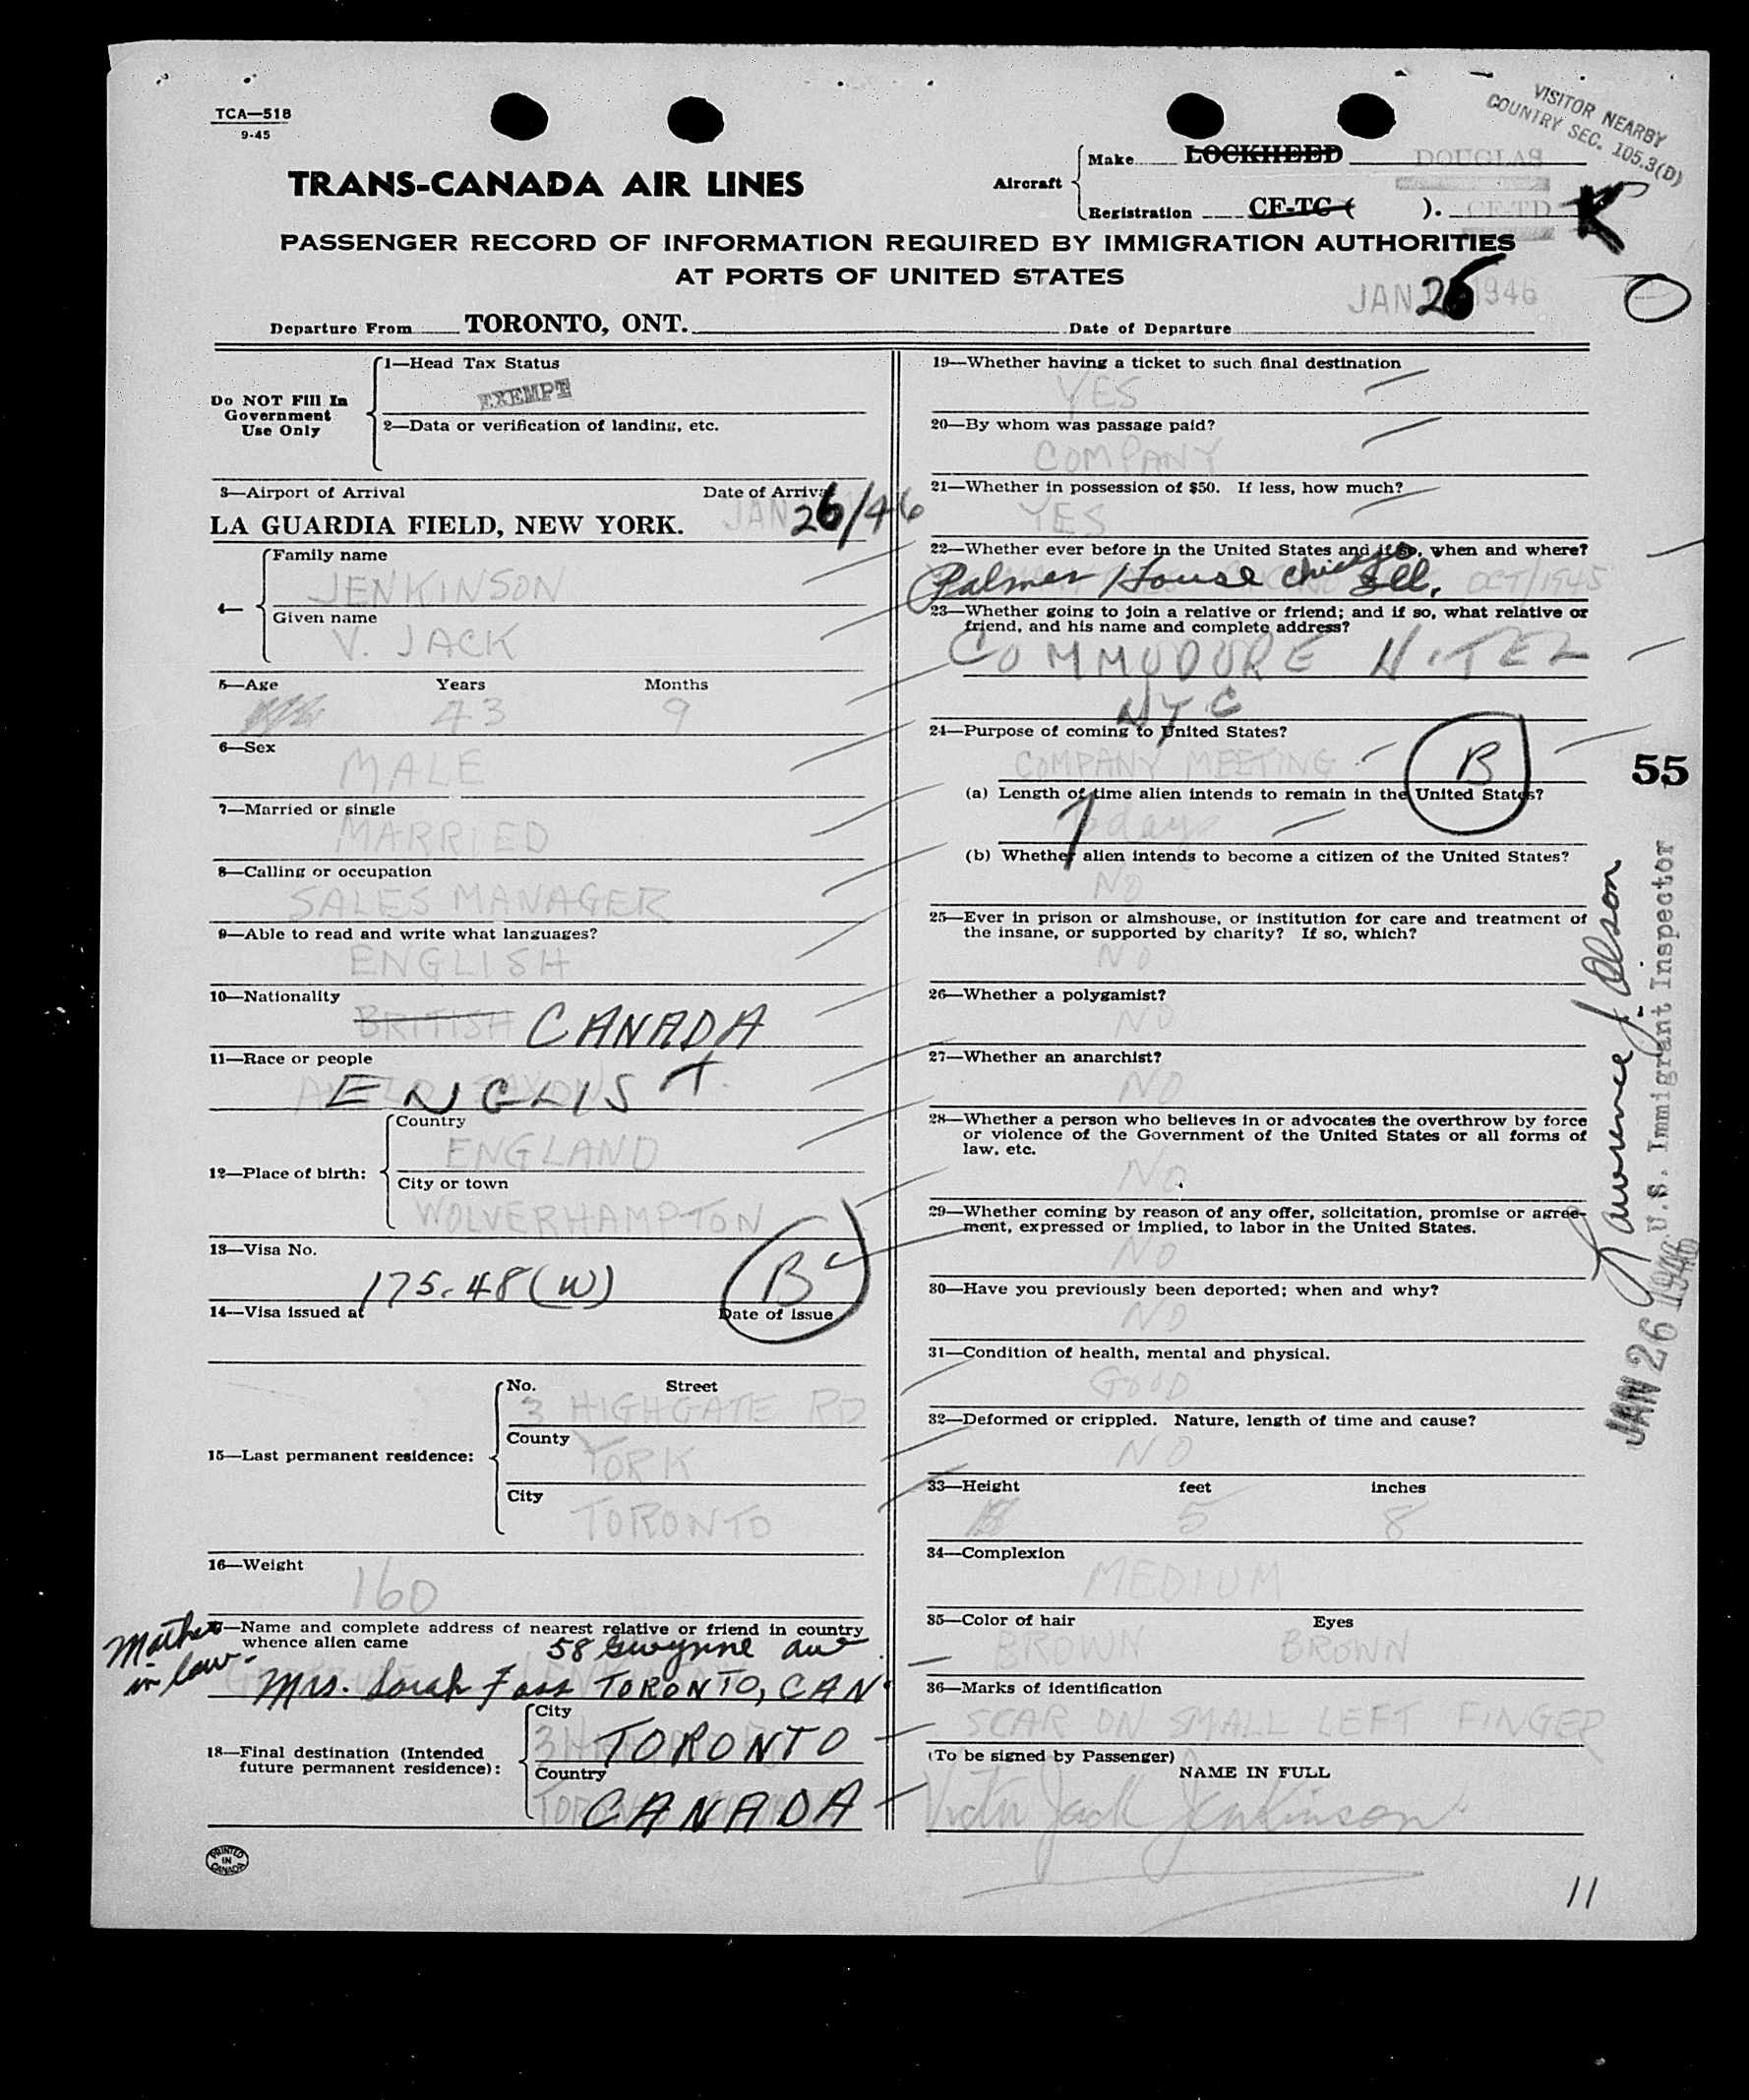 TCA—518
9-45
VISITOR NEARBY
COUNTRY SEC. 105.3(D)
TRANS-CANADA AIR LINES
Aircraft
Make LOCKHEED DOUGLAS
Registration CF-TC ( ). CF-TD K
PASSENGER RECORD OF INFORMATION REQUIRED BY IMMIGRATION AUTHORITIES
AT PORTS OF UNITED STATES
JAN 26 1946
Departure From TORONTO, ONT. Date of Departure
Do NOT Fill In
Government
Use Only
1—Head Tax Status
EXEMPT
2—Data or verification of landing, etc.
3—Airport of Arrival Date of Arrival
LA GUARDIA FIELD, NEW YORK. JAN 26/46
4—
Family name
JENKINSON
Given name
V. JACK
5—Age Years Months
43 9
6—Sex
MALE
7—Married or single
MARRIED
8—Calling or occupation
SALES MANAGER
9—Able to read and write what languages?
ENGLISH
10—Nationality
BRITISH CANADA
11—Race or people
ENGLISH
12—Place of birth:
Country
ENGLAND
City or town
WOLVERHAMPTON
13—Visa No.
175.48(W) B
14—Visa issued at Date of issue
15—Last permanent residence:
No. Street
3 HIGHGATE RD
County
YORK
City
TORONTO
16—Weight
160
17—Name and complete address of nearest relative or friend in country
whence alien came
Mother
in law-
58 Gwynne Ave
Mrs. Sarah Foss TORONTO, CAN.
18—Final destination (Intended
future permanent residence):
City
TORONTO
Country
CANADA
PRINTED
IN
CANADA
19—Whether having a ticket to such final destination
YES
20—By whom was passage paid?
COMPANY
21—Whether in possession of $50. If less, how much?
YES
22—Whether ever before in the United States and if so, when and where?
Palmer House Chicago Ill. OCT/1945
23—Whether going to join a relative or friend; and if so, what relative or
friend, and his name and complete address?
COMMODORE HOTEL
NYC
24—Purpose of coming to United States?
COMPANY MEETING B
(a) Length of time alien intends to remain in the United States?
7 days
(b) Whether alien intends to become a citizen of the United States?
NO
25—Ever in prison or almshouse, or institution for care and treatment of
the insane, or supported by charity? If so, which?
NO
26—Whether a polygamist?
NO
27—Whether an anarchist?
NO
28—Whether a person who believes in or advocates the overthrow by force
or violence of the Government of the United States or all forms of
law, etc.
NO
29—Whether coming by reason of any offer, solicitation, promise or agree-
ment, expressed or implied, to labor in the United States.
NO
30—Have you previously been deported; when and why?
NO
31—Condition of health, mental and physical.
GOOD
32—Deformed or crippled. Nature, length of time and cause?
NO
33—Height feet inches
5 8
34—Complexion
MEDIUM
35—Color of hair Eyes
BROWN BROWN
36—Marks of identification
SCAR ON SMALL LEFT FINGER
(To be signed by Passenger)
NAME IN FULL
Victor Jack Jenkinson
55
Lawrence J. Olson
U.S. Immigrant Inspector
JAN 26 1946
11